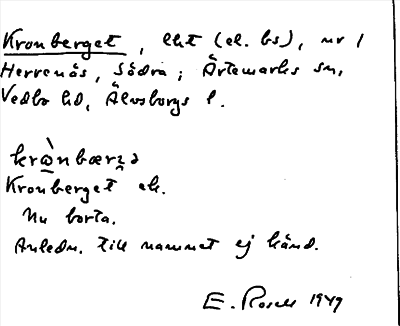 Kronberget, lht (el. bs), nr 1
Herrenäs, Södra; Ärtemarks sn,
Vedbo hd, Älvsborgs l.
Kronberget ek.
Nu borta.
Anledn. till namnet ej känd.
E. Rosell 1949